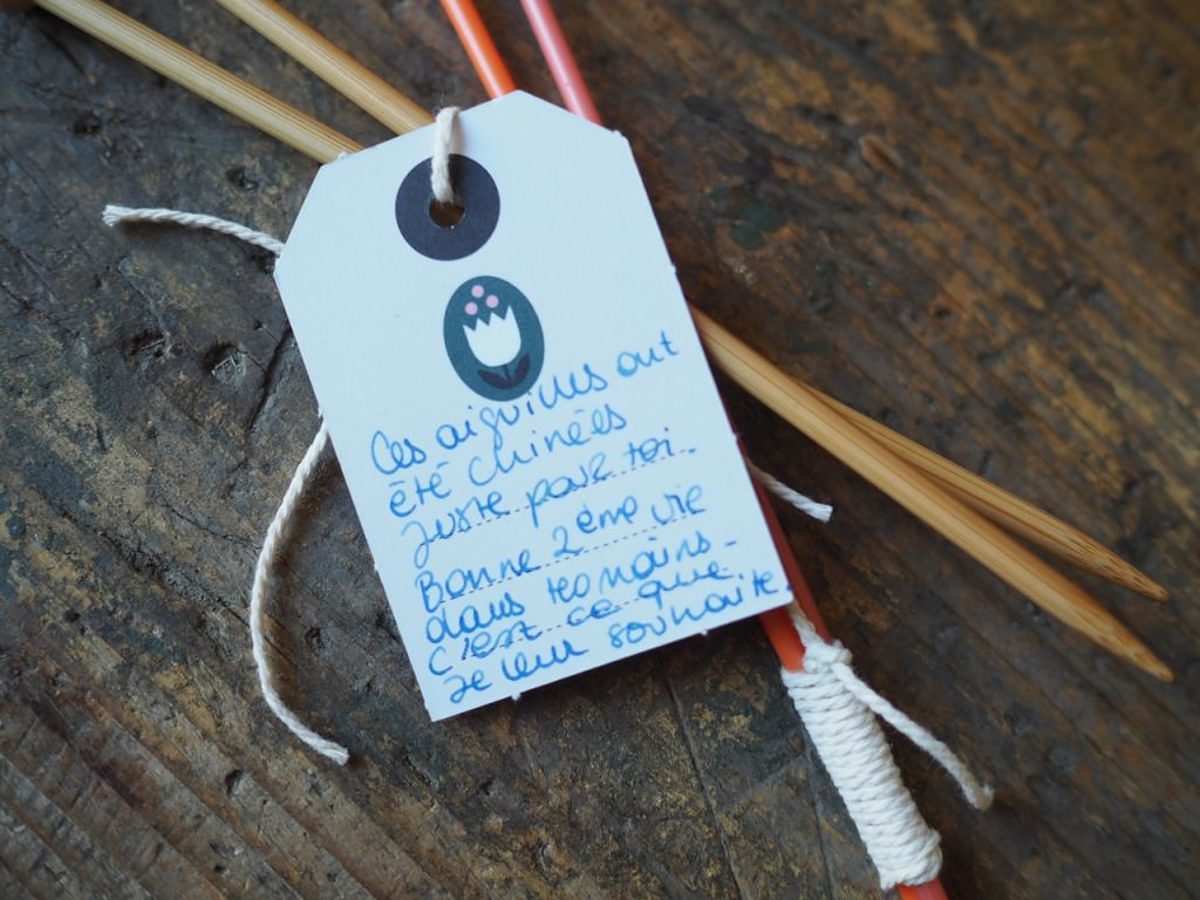 Ces aiguilles ont
été chinées
juste pour toi.
Bonne 2ème vie
dans tes mains.
C'est ce que
je leur souhaite.